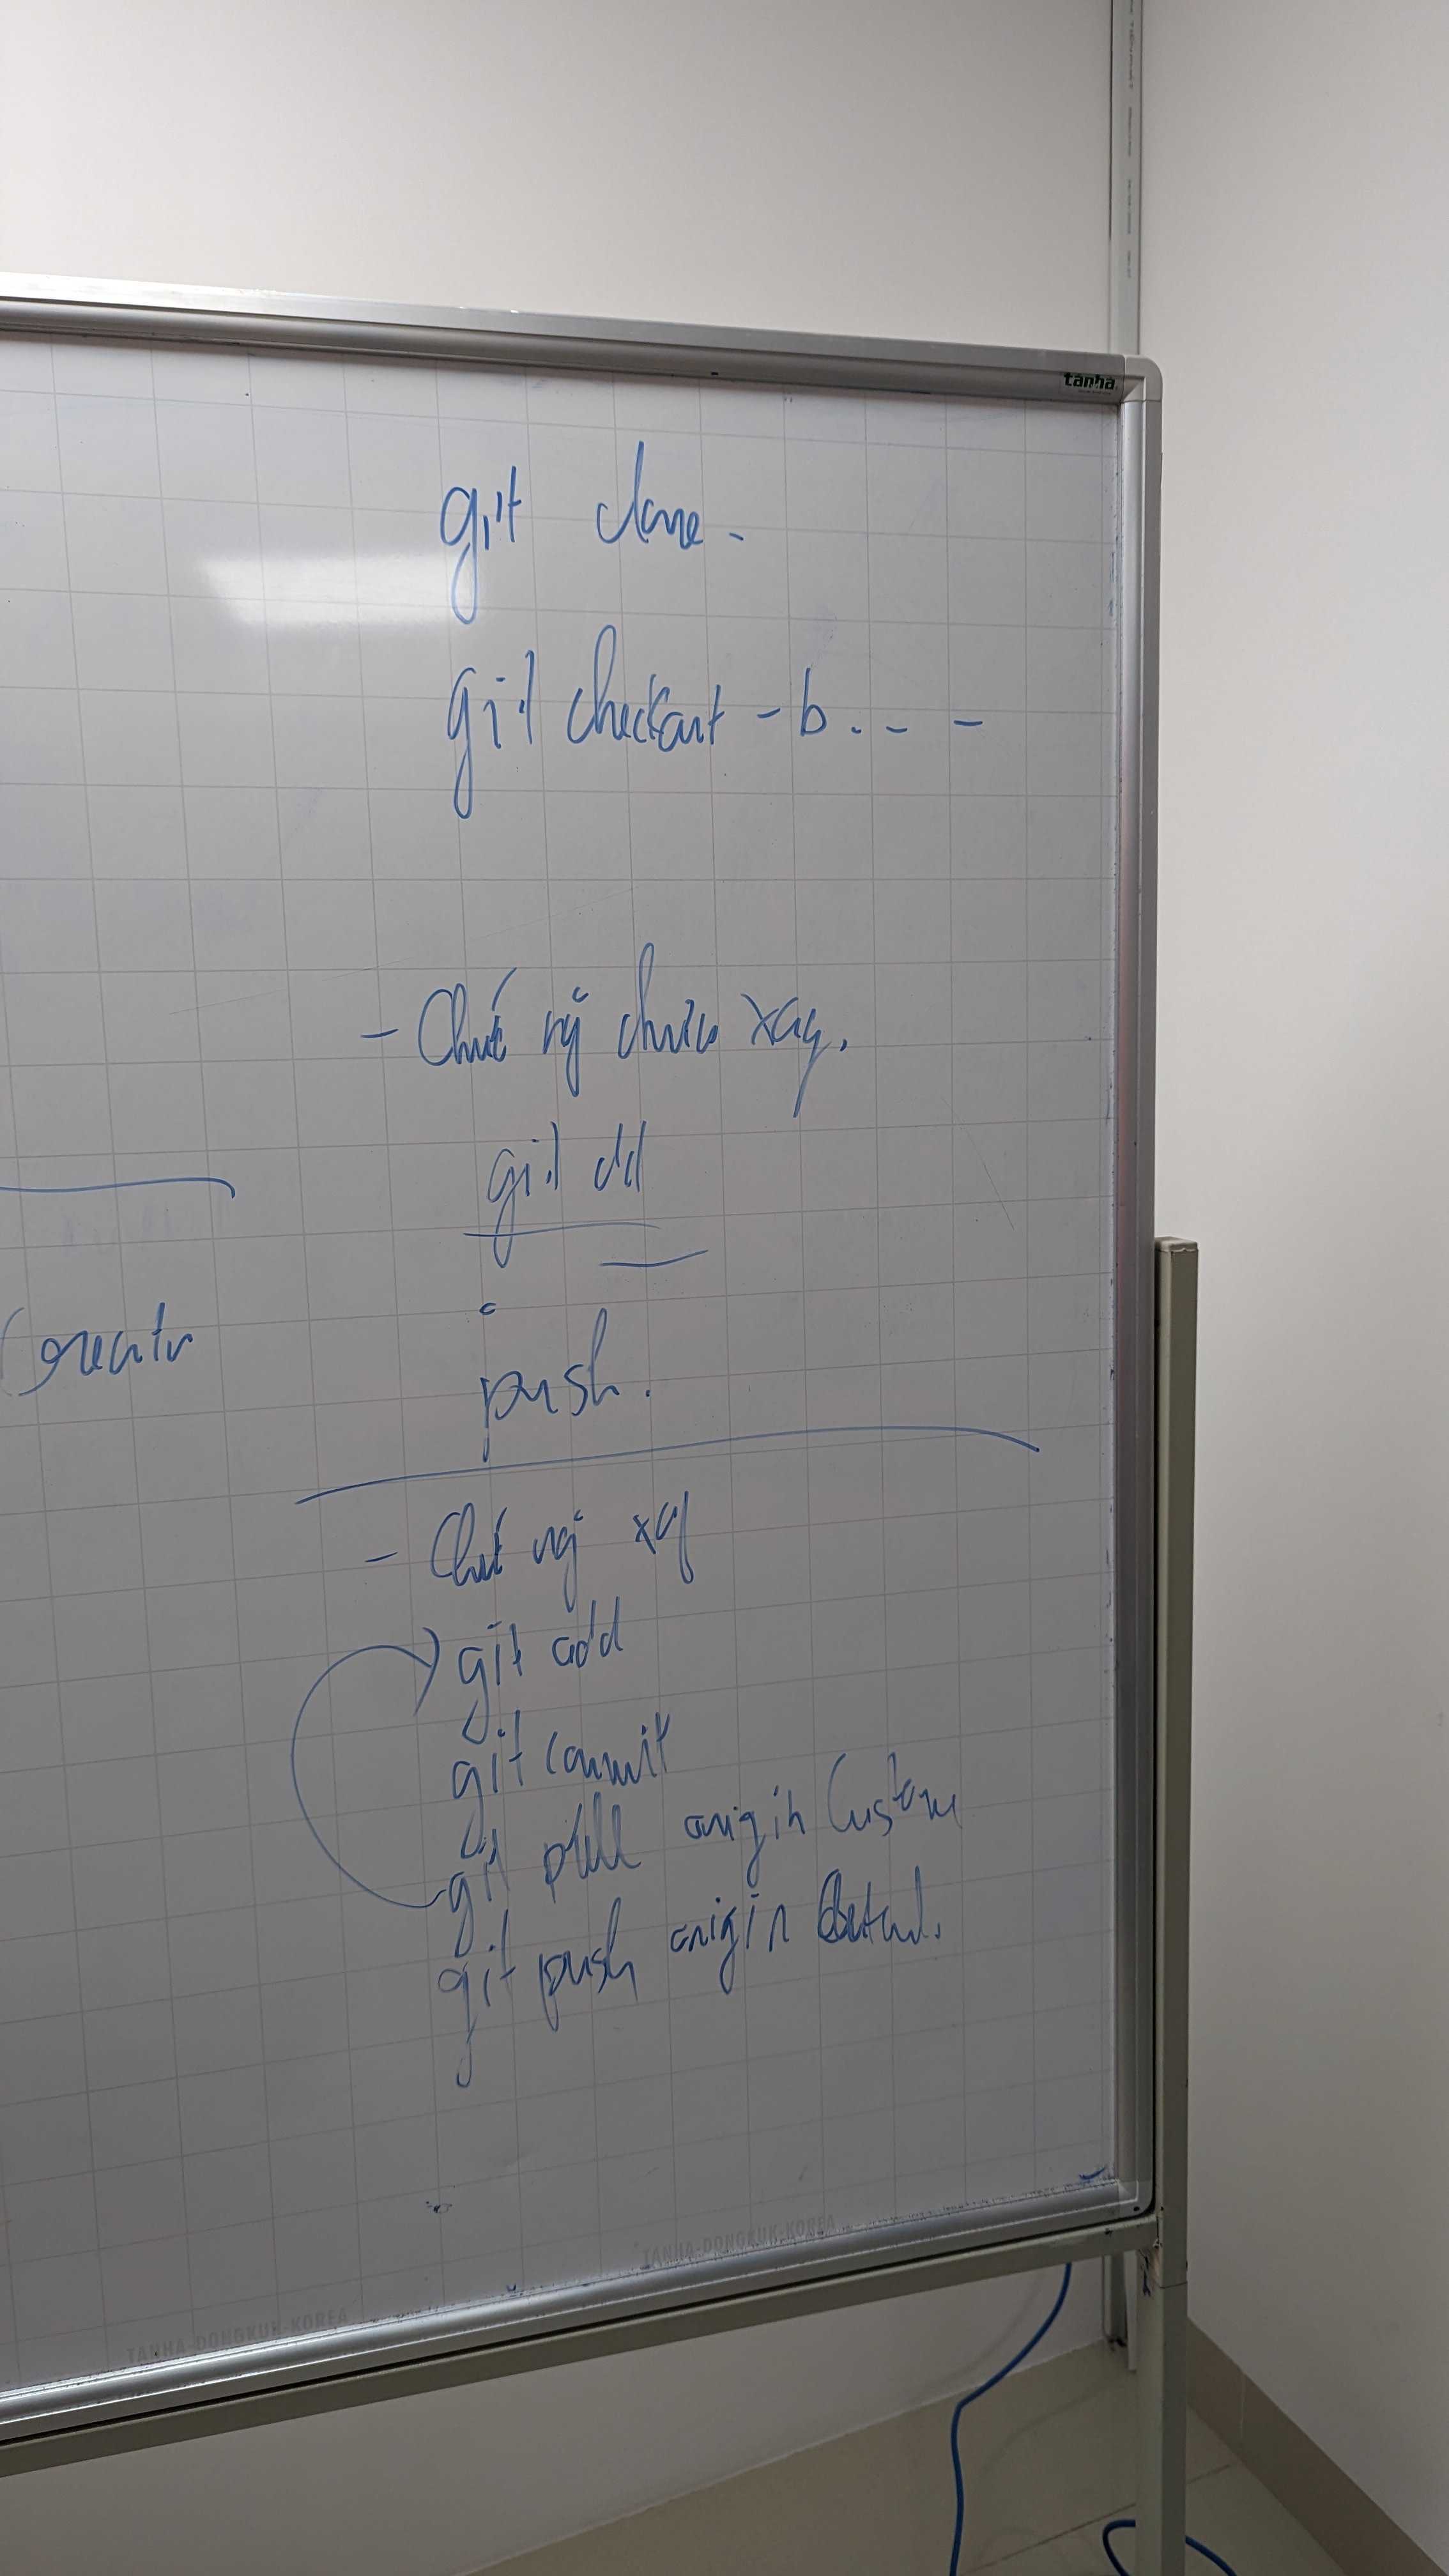 tanha
git clone.
git checkout - b . - -
- Chức năng chưa xong.
git add
push.
- Chức năng xong
git add
git commit
git pull origin Custome
git push origin Detail.
TANHA-DONGKUK-KOREA
TANHA-DONGKUK-KOREA